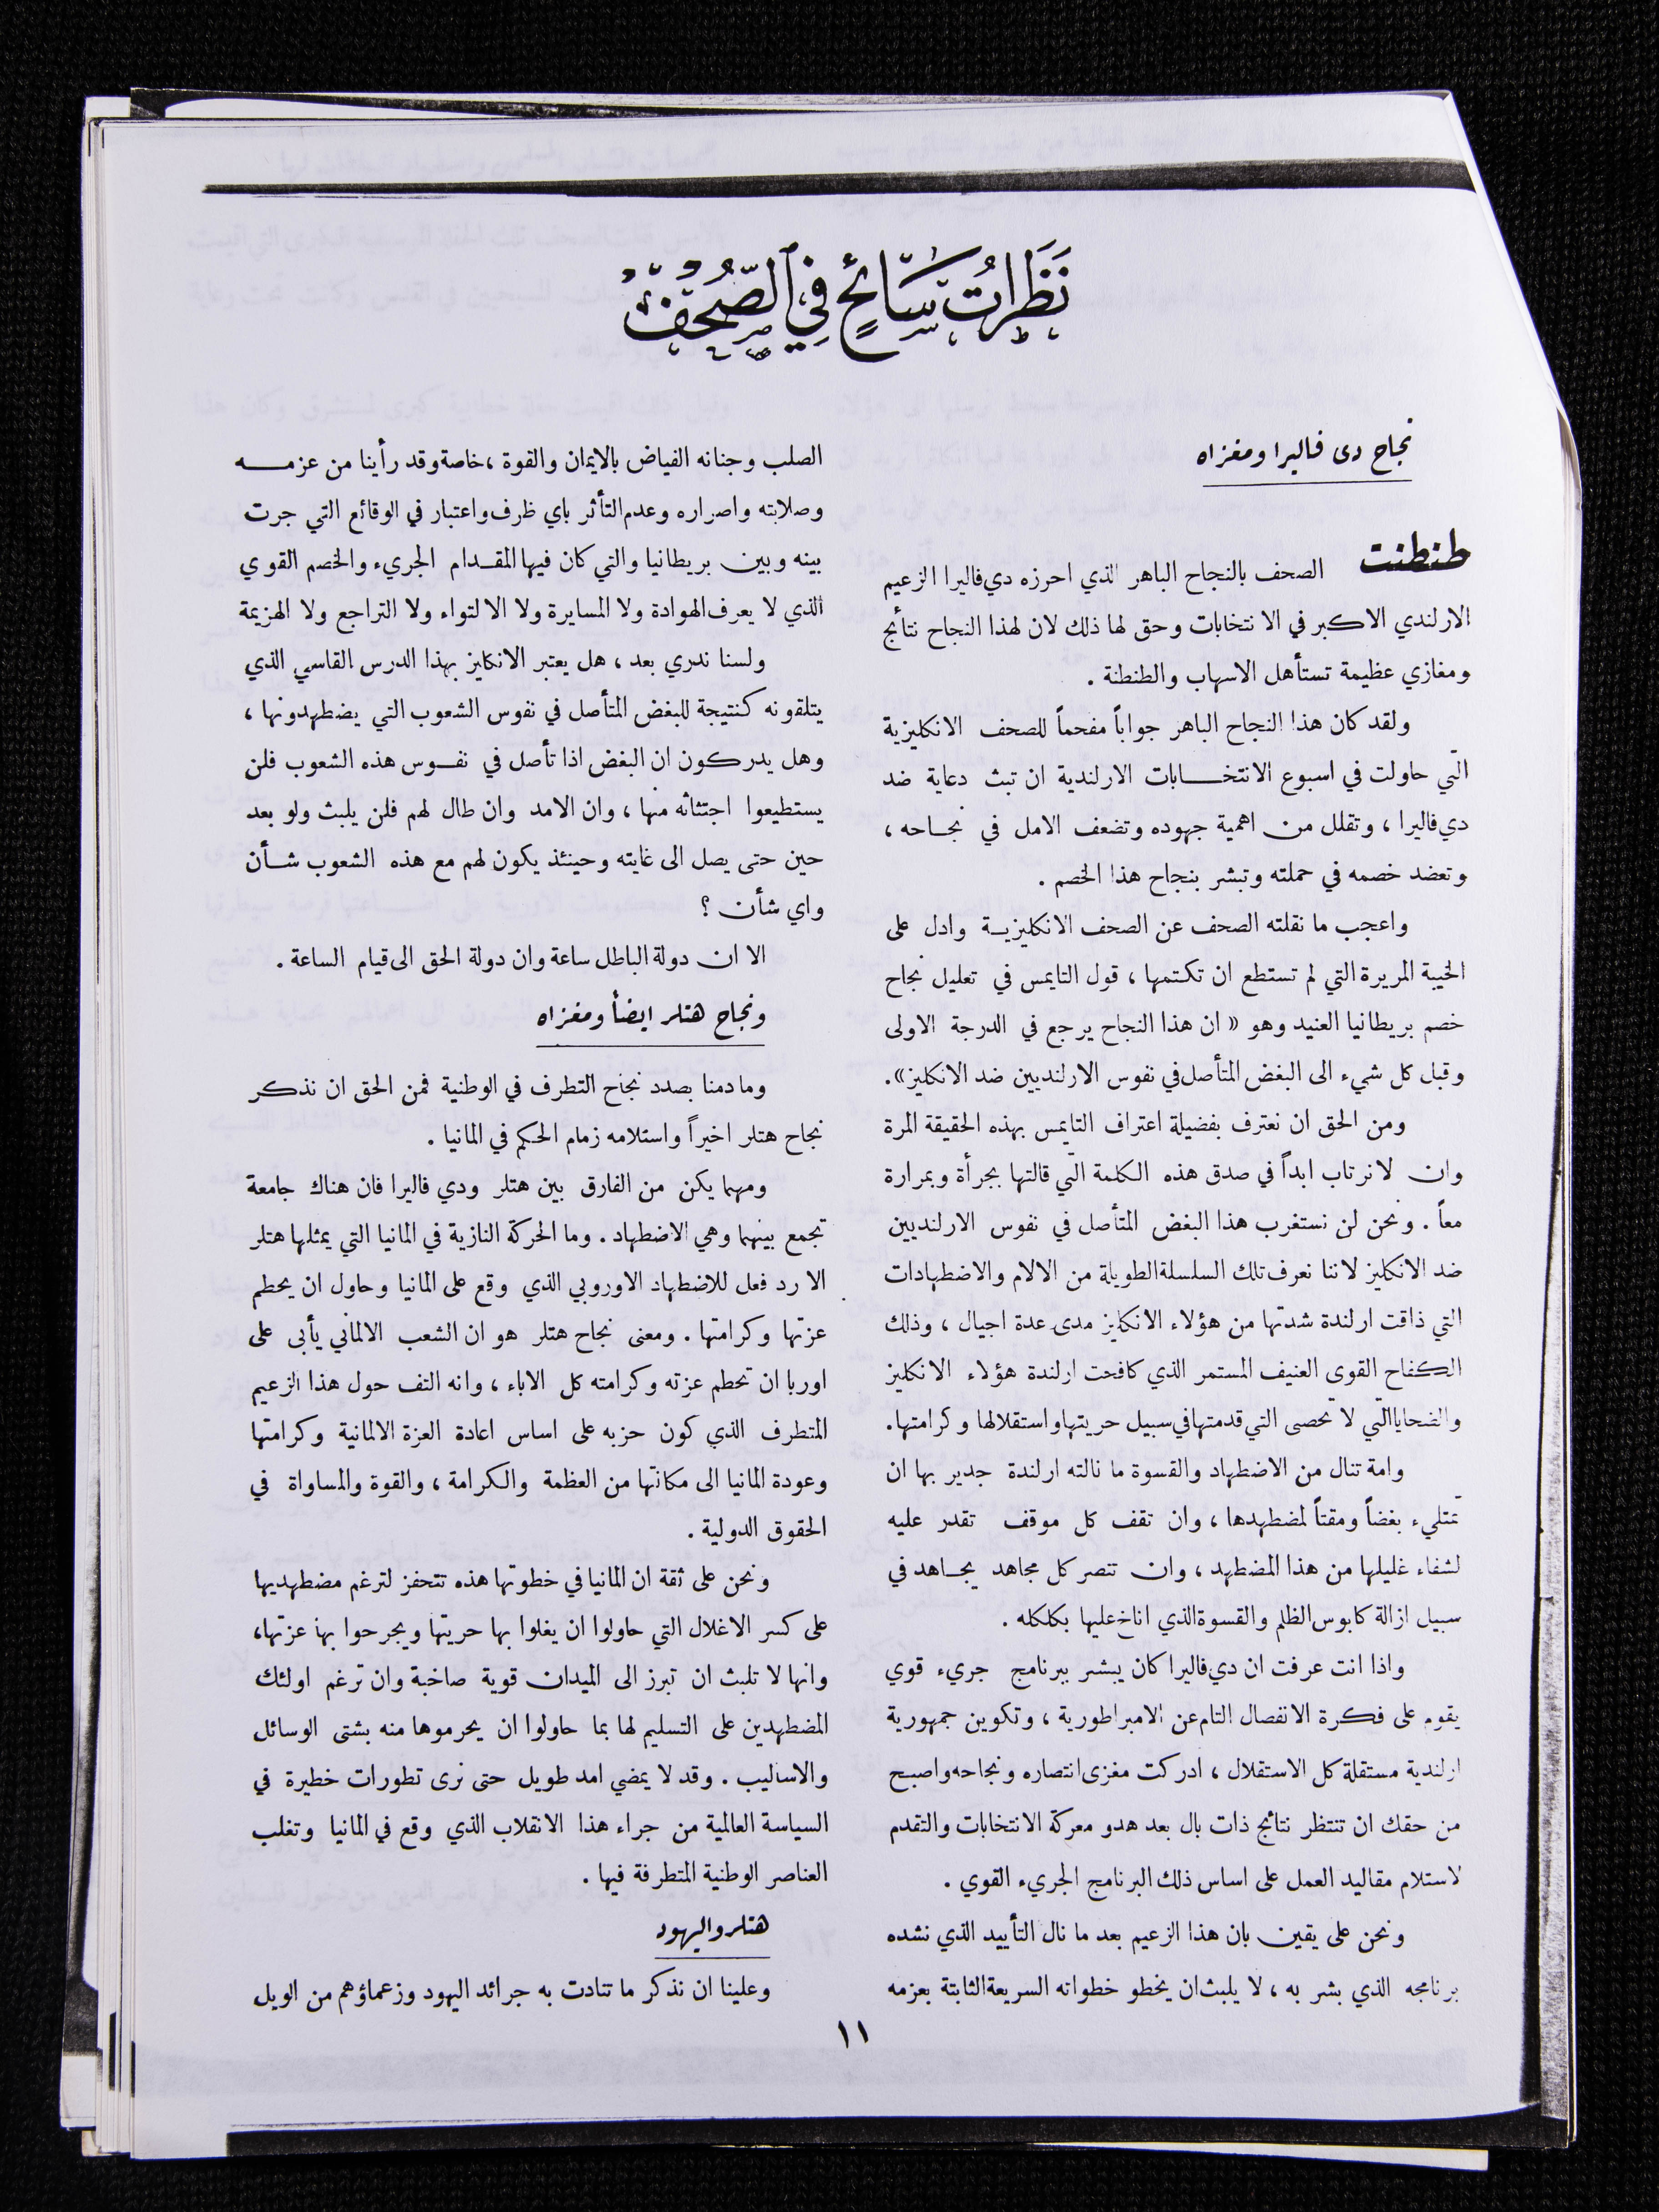 نَظَرَاتُ سَائِحٍ فِي الصُّحُفِ
نجاح دى فاليرا ومغزاه
طنطنت الصحف بالنجاح الباهر الذي احرزه دي فاليرا الزعيم
الارلندي الاكبر في الانتخابات وحق لها ذلك لان لهذا النجاح نتائج
ومغازي عظيمة تستأهل الاسهاب والطنطنة .
ولقد كان هذا النجاح الباهر جواباً مفحماً للصحف الانكليزية
التي حاولت في اسبوع الانتخابات الارلندية ان تبث دعاية ضد
دي فاليرا ، وتقلل من اهمية جهوده وتضعف الامل في نجاحه ،
وتعضد خصمه في حملته وتبشر بنجاح هذا الخصم .
واعجب ما نقلته الصحف عن الصحف الانكليزية وادل على
الخيبة المريرة التي لم تستطع ان تكتمها ، قول التايمس في تعليل نجاح
خصم بريطانيا العنيد وهو « ان هذا النجاح يرجع في الدرجة الاولى
وقبل كل شيء الى البغض المتأصل في نفوس الارلنديين ضد الانكليز».
ومن الحق ان نعترف بفضيلة اعتراف التايمس بهذه الحقيقة المرة
وان لا نرتاب ابداً في صدق هذه الكلمة التي قالتها بجرأة وبمرارة
معاً . ونحن لن نستغرب هذا البغض المتأصل في نفوس الارلنديين
ضد الانكليز لاننا نعرف تلك السلسلة الطويلة من الالام والاضطهادات
التي ذاقت ارلندة شدتها من هؤلاء الانكليز مدى عدة اجيال ، وذلك
الكفاح القوى العنيف المستمر الذي كافحت ارلندة هؤلاء الانكليز
والضحايا التي لا تحصى التي قدمتها في سبيل حريتها واستقلالها وكرامتها.
وامة تنال من الاضطهاد والقسوة ما نالته ارلندة جدير بها ان
تمتليء بغضاً ومقتاً لمضطهدها ، وان تقف كل موقف تقدر عليه
لشفاء غليلها من هذا المضطهد ، وان تنصر كل مجاهد يجاهد في
سبيل ازالة كابوس الظلم والقسوة الذي اناخ عليها بكلكله .
واذا انت عرفت ان دي فاليرا كان يبشر ببرنامج جريء قوي
يقوم على فكرة الانفصال التام عن الامبراطورية ، وتكوين جمهورية
ارلندية مستقلة كل الاستقلال ، ادركت مغزى انتصاره ونجاحه واصبح
من حقك ان تنتظر نتائج ذات بال بعد هدو معركة الانتخابات والتقدم
لاستلام مقاليد العمل على اساس ذلك البرنامج الجريء القوي .
ونحن على يقين بان هذا الزعيم بعد ما نال التأييد الذي نشده
برنامجه الذي بشر به ، لا يلبث ان يخطو خطواته السريعة الثابتة بعزمه
الصلب وجنانه الفياض بالايمان والقوة ، خاصة وقد رأينا من عزمه
وصلابته واصراره وعدم التأثر باي ظرف واعتبار في الوقائع التي جرت
بينه وبين بريطانيا والتي كان فيها المقدام الجريء والخصم القوي
الذي لا يعرف الهوادة ولا المسايرة ولا الالتواء ولا التراجع ولا الهزيمة
ولسنا ندري بعد ، هل يعتبر الانكليز بهذا الدرس القاسي الذي
يتلقونه كنتيجة للبغض المتأصل في نفوس الشعوب التي يضطهدونها ،
وهل يدركون ان البغض اذا تأصل في نفوس هذه الشعوب فلن
يستطيعوا اجتثاثه منها ، وان الامد وان طال لهم فلن يلبث ولو بعد
حين حتى يصل الى غايته وحينئذ يكون لهم مع هذه الشعوب شأن
واي شأن ؟
الا ان دولة الباطل ساعة وان دولة الحق الى قيام الساعة .
ونجاح هتلر ايضاً ومغزاه
وما دمنا بصدد نجاح التطرف في الوطنية فمن الحق ان نذكر
نجاح هتلر اخيراً واستلامه زمام الحكم في المانيا .
ومهما يكن من الفارق بين هتلر ودي فاليرا فان هناك جامعة
تجمع بينهما وهي الاضطهاد . وما الحركة النازية في المانيا التي يمثلها هتلر
الا رد فعل للاضطهاد الاوروبي الذي وقع على المانيا وحاول ان يحطم
عزتها وكرامتها . ومعنى نجاح هتلر هو ان الشعب الالماني يأبى على
اوربا ان تحطم عزته وكرامته كل الاباء ، وانه التف حول هذا الزعيم
المتطرف الذي كون حزبه على اساس اعادة العزة الالمانية وكرامتها
وعودة المانيا الى مكانتها من العظمة والكرامة ، والقوة والمساواة في
الحقوق الدولية .
ونحن على ثقة ان المانيا في خطوتها هذه تتحفز لترغم مضطهديها
على كسر الاغلال التي حاولوا ان يغلوا بها حريتها ويجرحوا بها عزتها،
وانها لا تلبث ان تبرز الى الميدان قوية صاخبة وان ترغم اولئك
المضطهدين على التسليم لها بما حاولوا ان يحرموها منه بشتى الوسائل
والاساليب . وقد لا يمضي امد طويل حتى نرى تطورات خطيرة في
السياسة العالمية من جراء هذا الانقلاب الذي وقع في المانيا وتغلب
العناصر الوطنية المتطرفة فيها .
هتلر واليهود
وعلينا ان نذكر ما تنادت به جرائد اليهود وزعماؤهم من الويل
١١